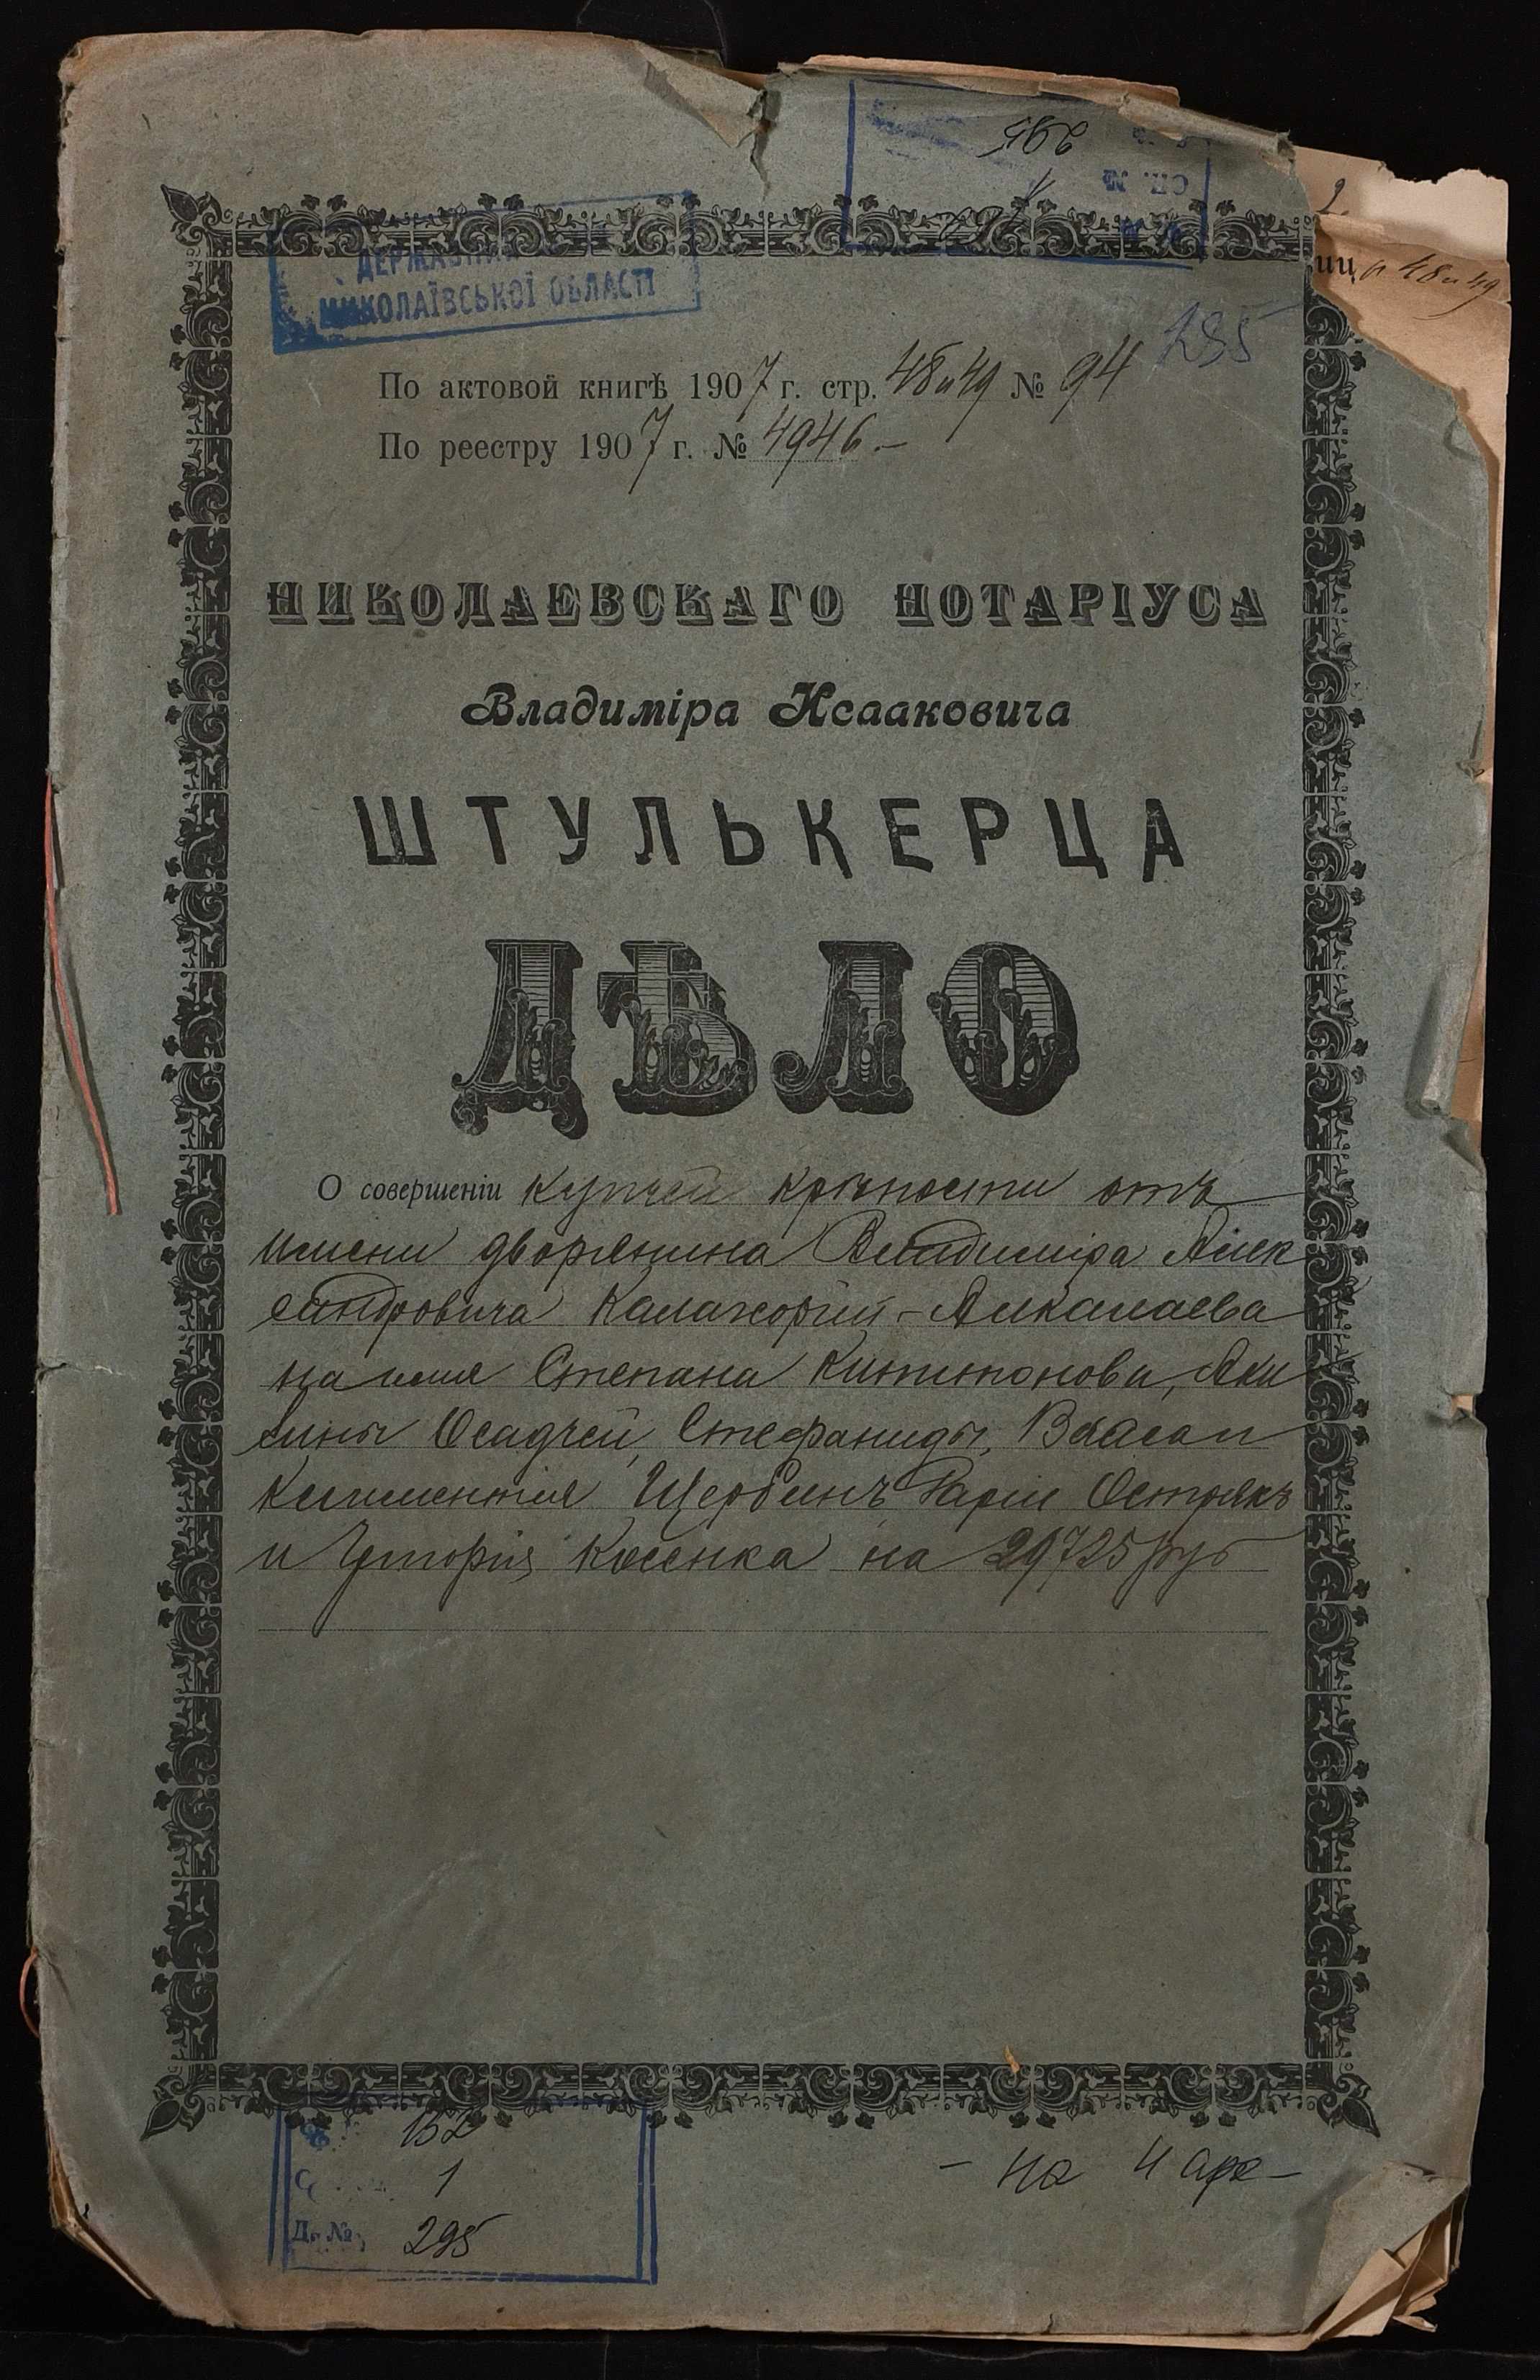 295
2.
иц. 48 и 49
ДЕРЖАВНИЙ
МИКОЛАЇВСЬКОЇ ОБЛАСТІ
295
По актовой книгѣ 1907 г. стр. 48 и 49 № 94
По реестру 1907 г. № 4946.—
НИКОЛАЕВСКАГО НОТАРІУСА
Владиміра Исааковича
ШТУЛЬКЕРЦА
ДѢЛО
О совершеніи купчей крѣпости отъ
имени дворянина Владиміра Алек
сандровича Калагеоргій-Алкалаева
на имя Степана Капитонова, Аки
лины Осадчей, Стефаниды,
Климентія Щербинъ Острякъ
и Косенка на 29725 руб
152
1
Д. № 295
- на 4 арк -